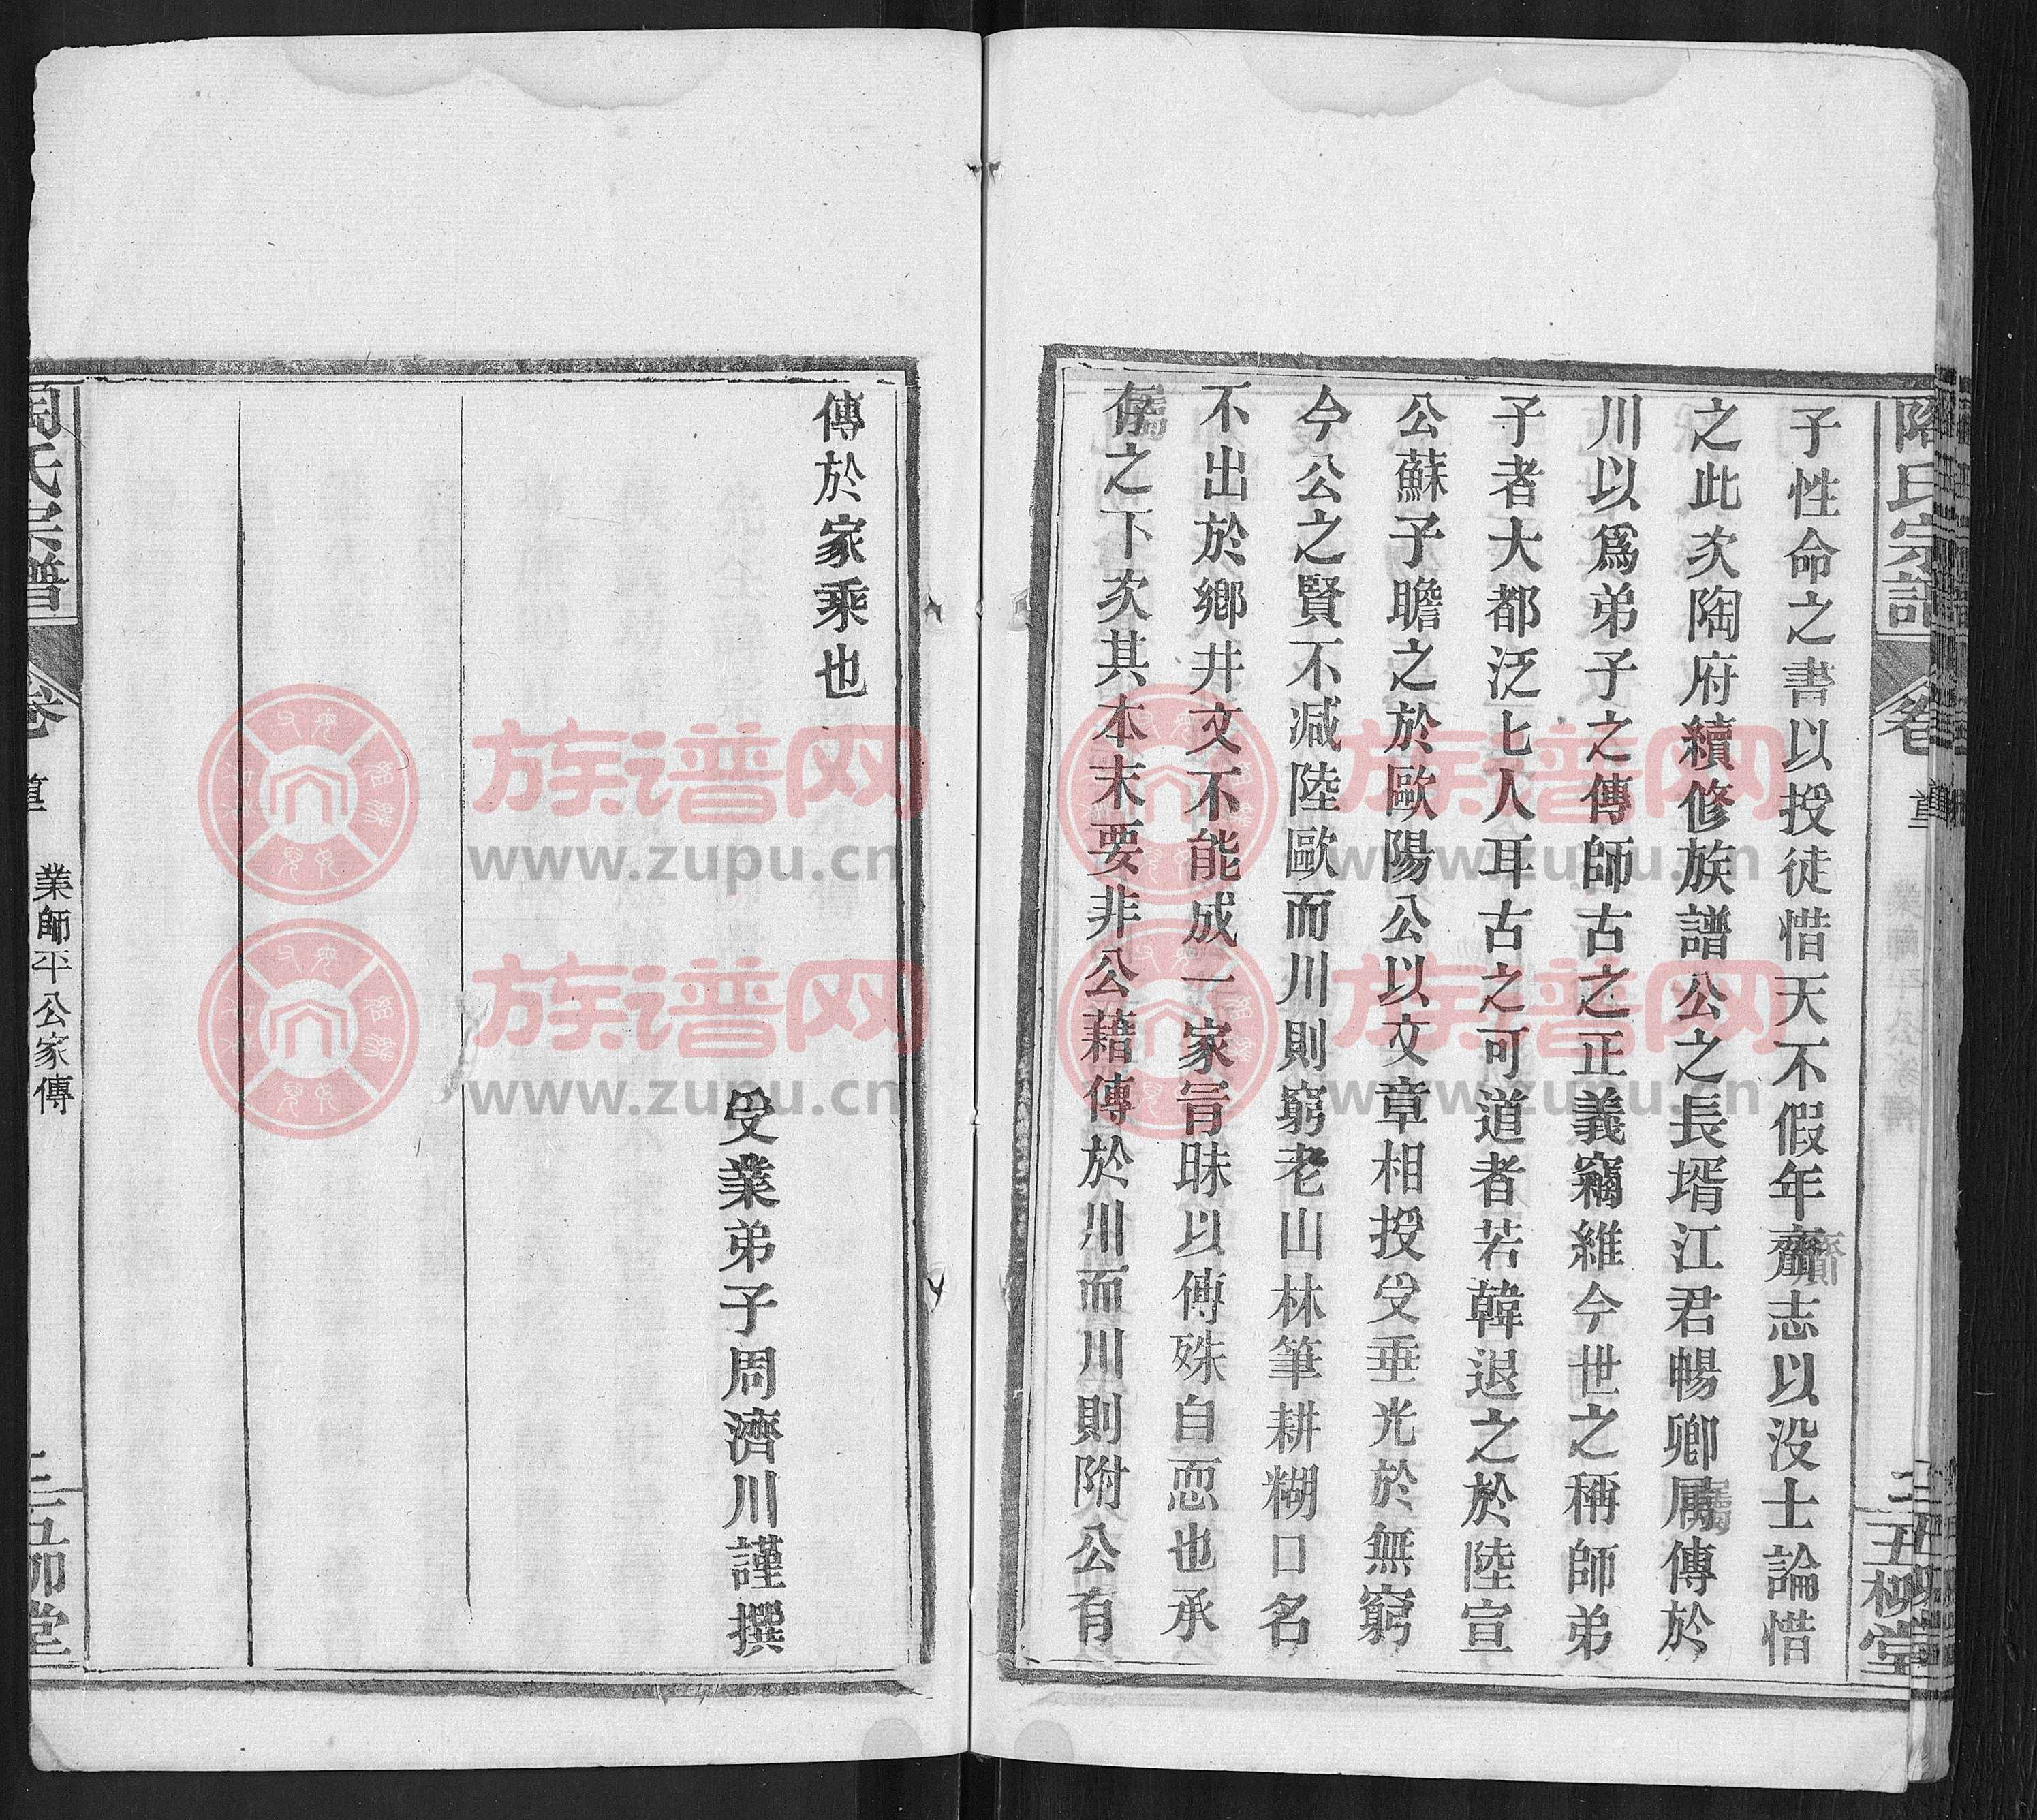 陶氏宗譜
卷
五柳堂
子性命之書以授徒惜天不假年齎志以没士論惜
之此次陶府續修族譜公之長壻江君暢卿属傳於
川以爲弟子之傳師古之正義竊維今世之稱師弟
子者大都泛七人耳古之可道者若韓退之於陸宣
公蘇子瞻之於歐陽公以文章相授受垂光於無窮
今公之賢不減陸歐而川則窮老山林筆耕糊口名
不出於鄉井文不能成一家冐昧以傳殊自恧也承
存之下次其本末要非公藉傳於川而川則附公有
傳於家乘也
受業弟子周濟川謹撰
陶氏宗譜
卷
業師平公家傳
三
五柳堂
族谱网
www.zupu.cn
族谱网
www.zupu.cn
族谱网
www.zupu.cn
族谱网
www.zupu.cn